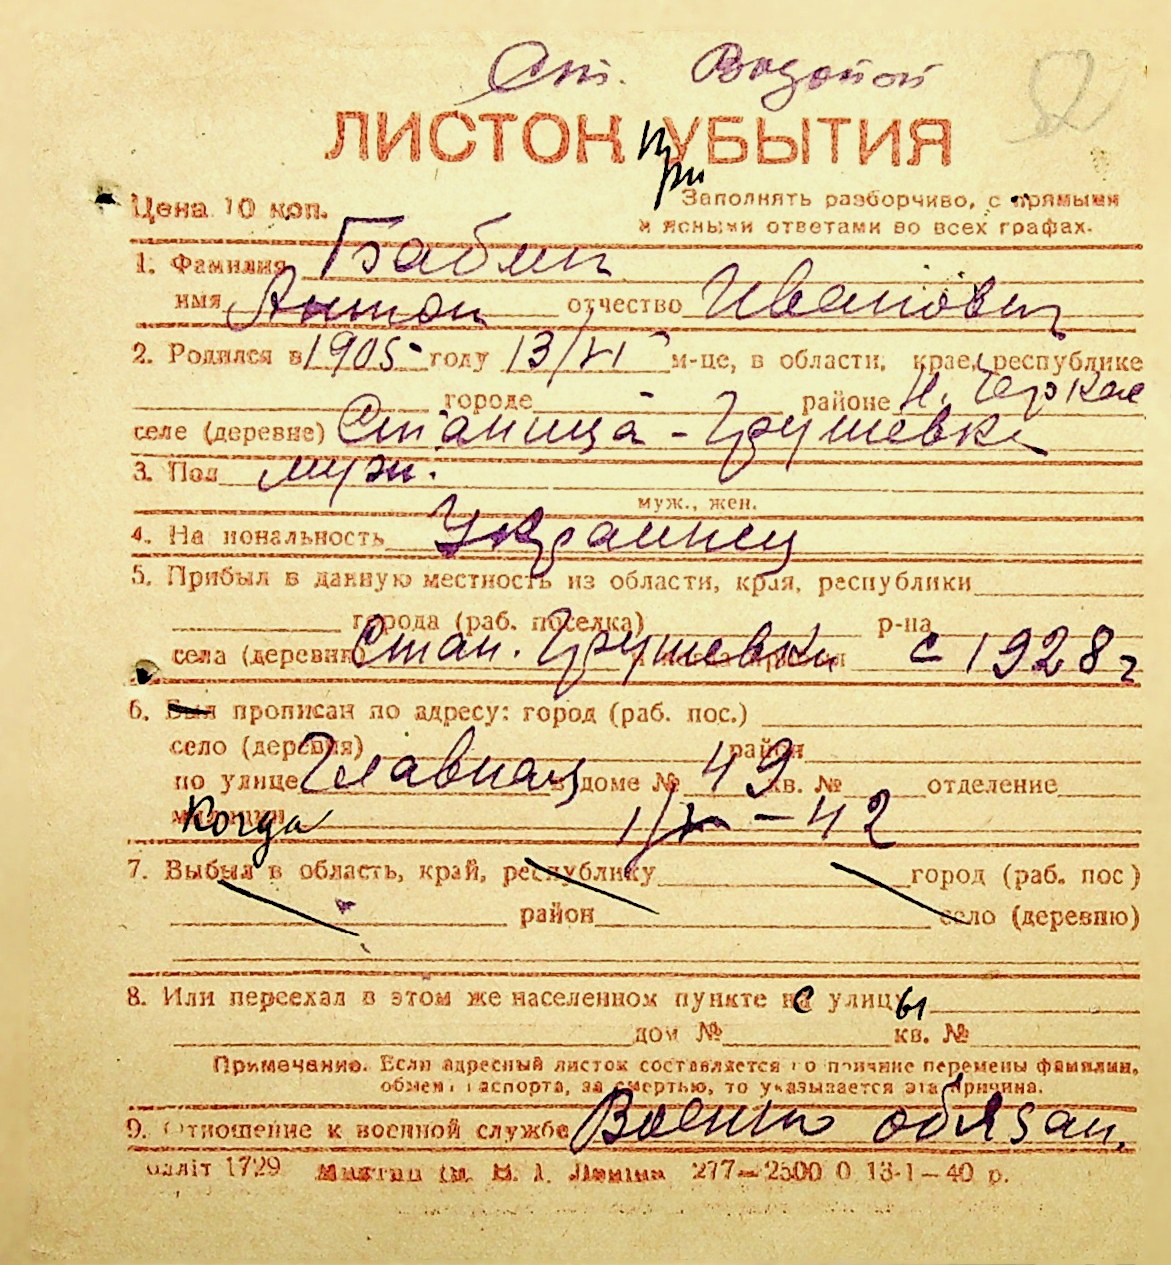 Ст. Водопой
ЛИСТОК УБЫТИЯ
при
Цена 10 коп.
Заполнять разборчиво, с прямыми
и ясными ответами во всех графах.
1. Фамилия Бабин
имя Антон отчество Иванович
2. Родился в 1905 году 13/VI м-це, в области, крае, республике
городе районе Н. Черкас
селе (деревне) Станица-Грушевка
3. Пол муж.
муж., жен.
4. На иональность Украинец
5. Прибыл в данную местность из области, края, республики
города (раб. поселка) р-на
села (деревни) Стан. Грушевки с 1928 г
6. Был прописан по адресу: город (раб. пос.)
село (деревня) район
по улице Главная в доме № 49 кв. № отделение
милиции Когда 1/X - 42
7. Выбыл в область, край, республику город (раб. пос)
район село (деревню)
8. Или переехал в этом же населенном пункте с улицы
дом № кв. №
Примечание. Если адресный листок составляется по причине перемены фамилии,
обмена паспорта, за смертью, то указывается эта причина.
9. Отношение к военной службе Военно обязан.
блліт 1729 277—2500 0 13-1—40 р.